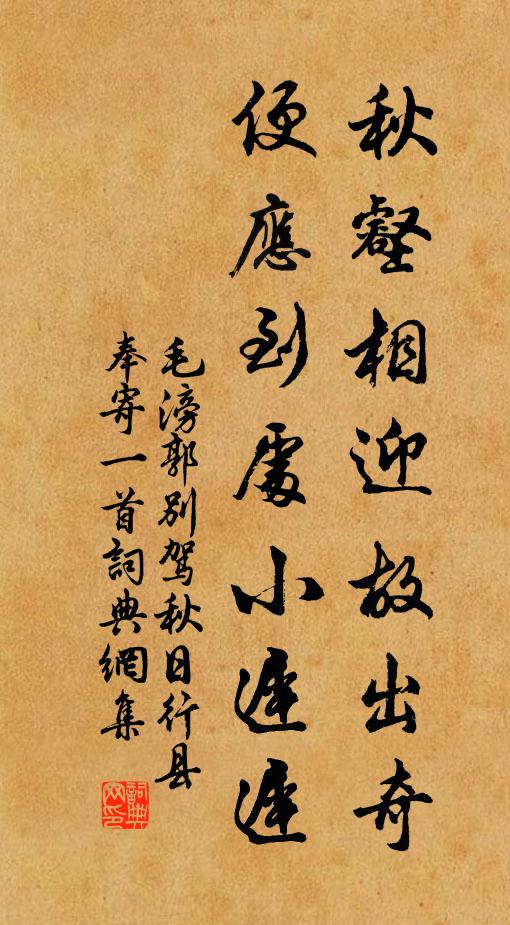 秋壑相迎故出奇
便應到處小遲遲
毛滂郭別駕秋日行县
奉寄一首詞典網集
詞典网印